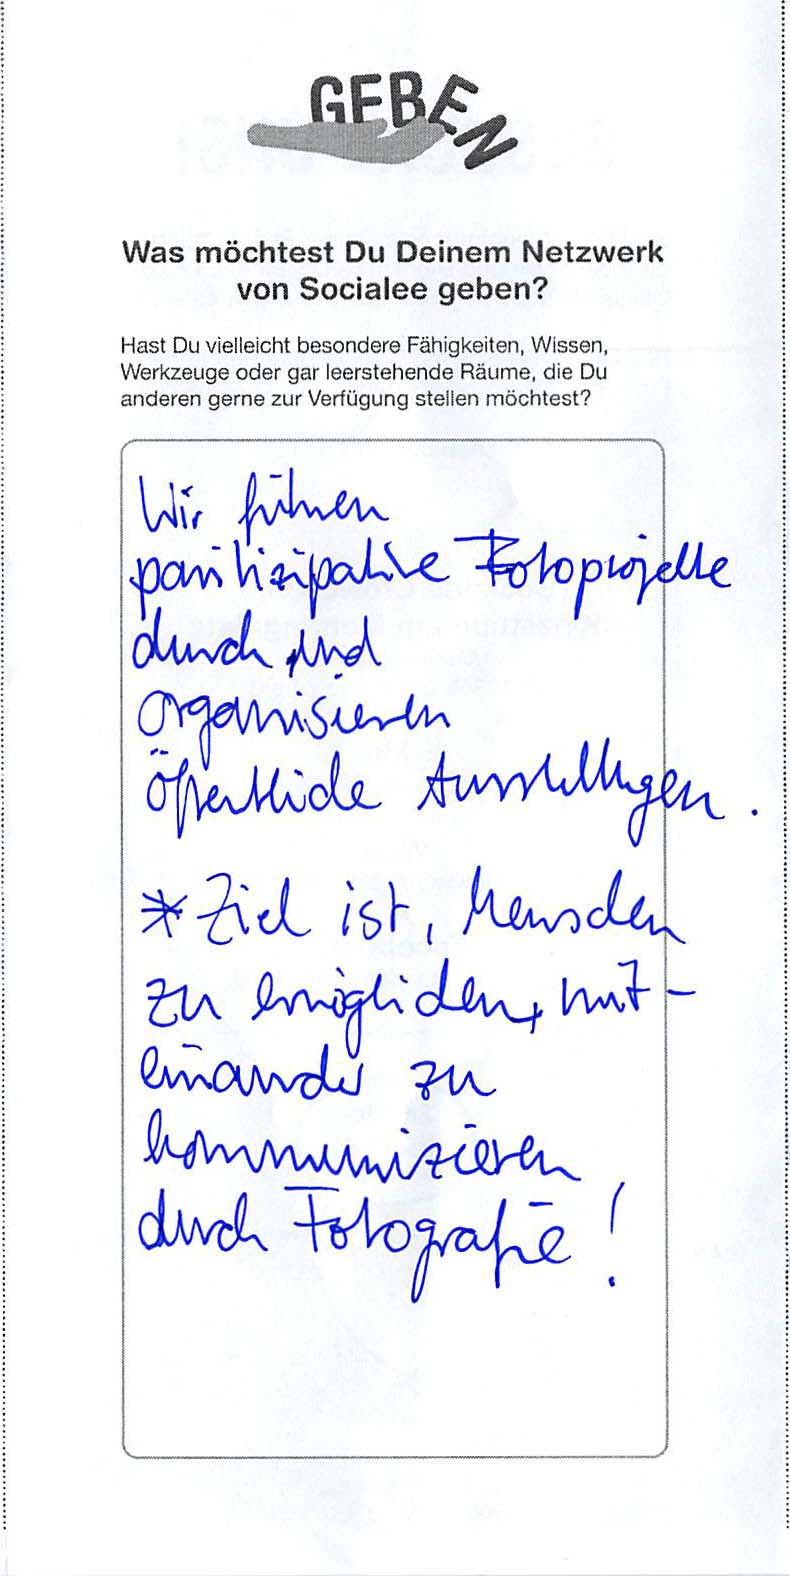 GEBEN
Was möchtest Du Deinem Netzwerk
von Socialee geben?
Hast Du vielleicht besondere Fähigkeiten, Wissen,
Werkzeuge oder gar leerstehende Räume, die Du
anderen gerne zur Verfügung stellen möchtest?
Wir führen
partizipative Fotoprojekte
durch und
organisieren
öffentliche Ausstellungen.
* Ziel ist, Menschen
zu ermöglichen, mit-
einander zu
kommunizieren
durch Fotografie!